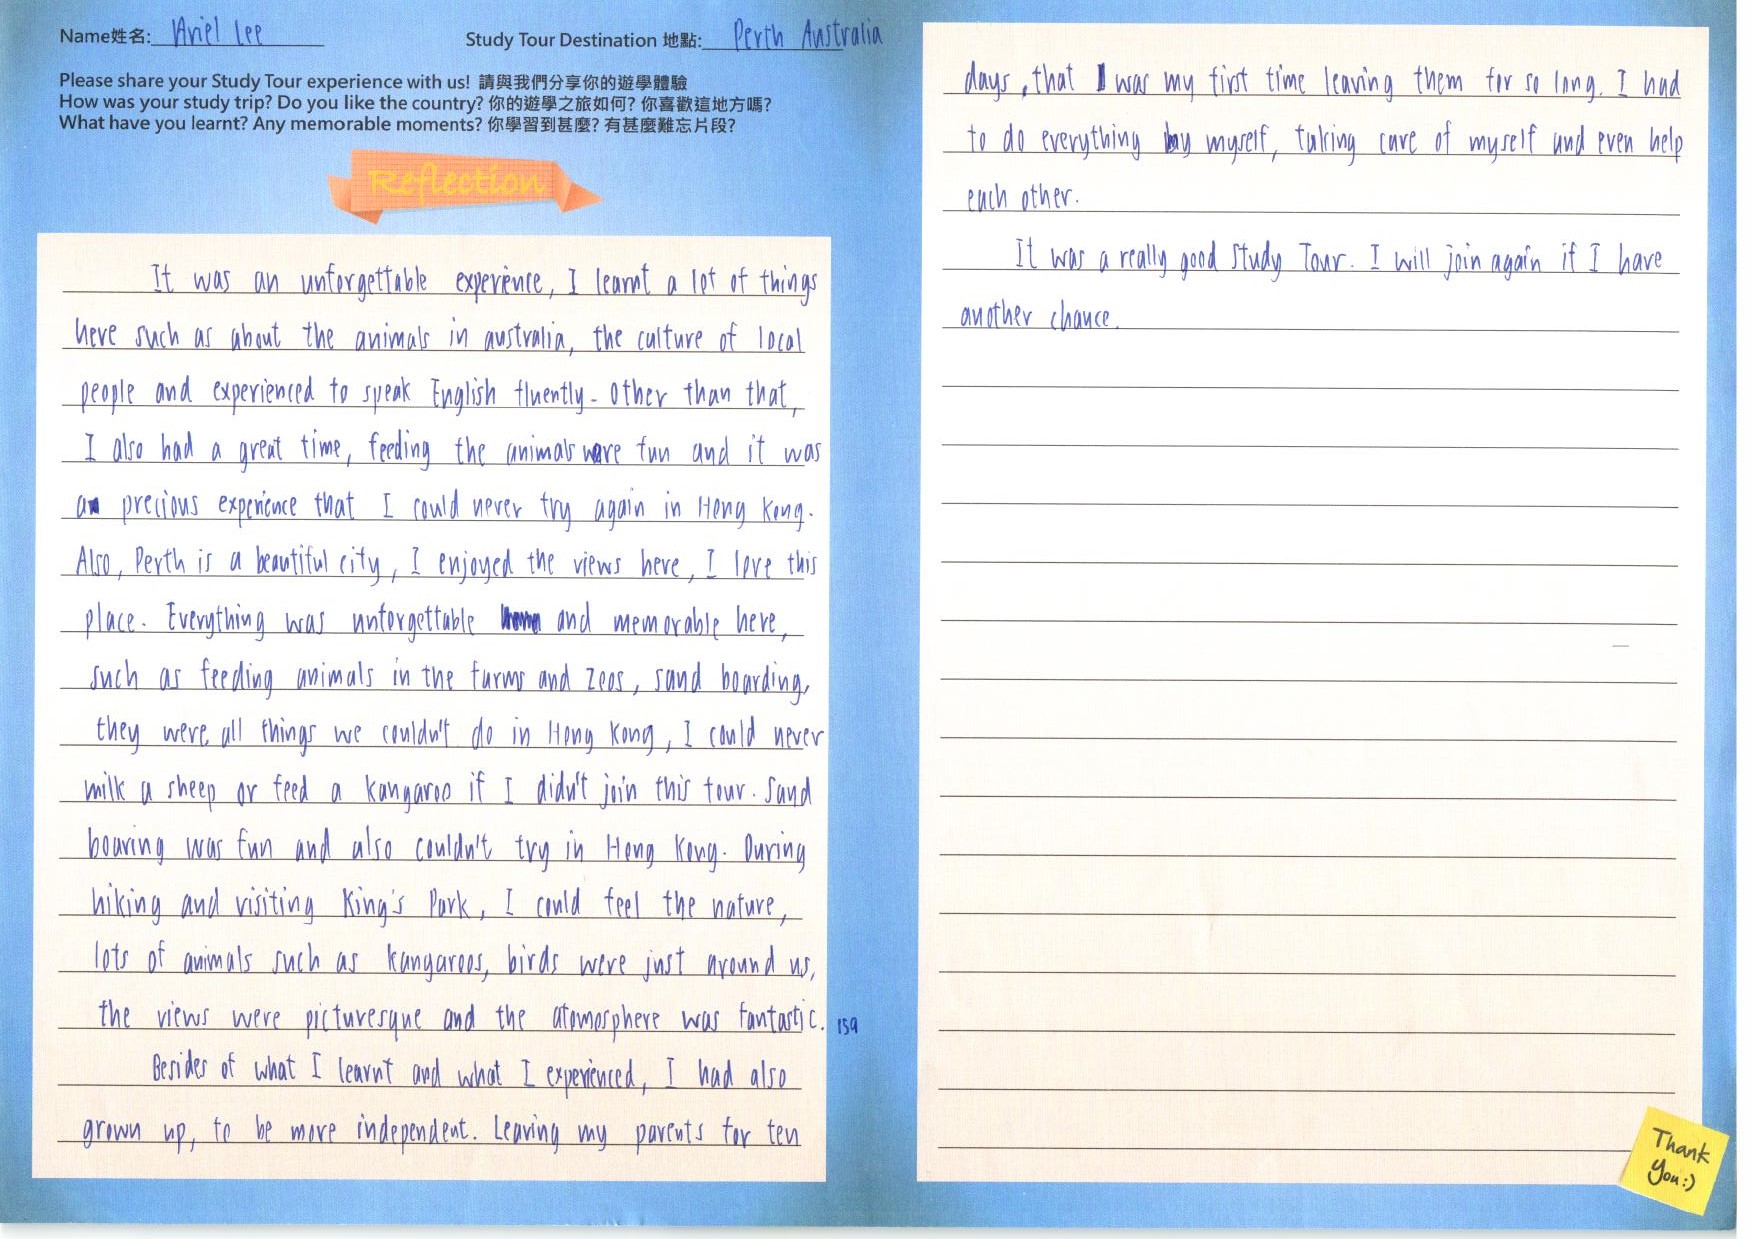 Name姓名: Ariel Lee
Study Tour Destination 地點: Perth Australia
Please share your Study Tour experience with us! 請與我們分享你的遊學體驗
How was your study trip? Do you like the country? 你的遊學之旅如何? 你喜歡這地方嗎?
What have you learnt? Any memorable moments? 你學習到甚麼? 有甚麼難忘片段?
Reflection
It was an unforgettable experience, I learnt a lot of things
here such as about the animals in australia, the culture of local
people and experienced to speak English fluently. Other than that,
I also had a great time, feeding the animals were fun and it was
a precious experience that I could never try again in Hong Kong.
Also, Perth is a beautiful city, I enjoyed the views here, I love this
place. Everything was unforgettable and memorable here,
such as feeding animals in the farms and zoos, sand boarding,
they were all things we couldn't do in Hong Kong, I could never
milk a sheep or feed a kangaroo if I didn't join this tour. Sand
boaring was fun and also couldn't try in Hong Kong. During
hiking and visiting King's Park, I could feel the nature,
lots of animals such as kangaroos, birds were just around us,
the views were picturesque and the atomosphere was fantastic. 159
Besides of what I learnt and what I experienced, I had also
grown up, to be more independent. Leaving my parents for ten
days, that was my first time leaving them for so long. I had
to do everything by myself, taking care of myself and even help
each other.
It was a really good Study Tour. I will join again if I have
another chance.
Thank
You:)